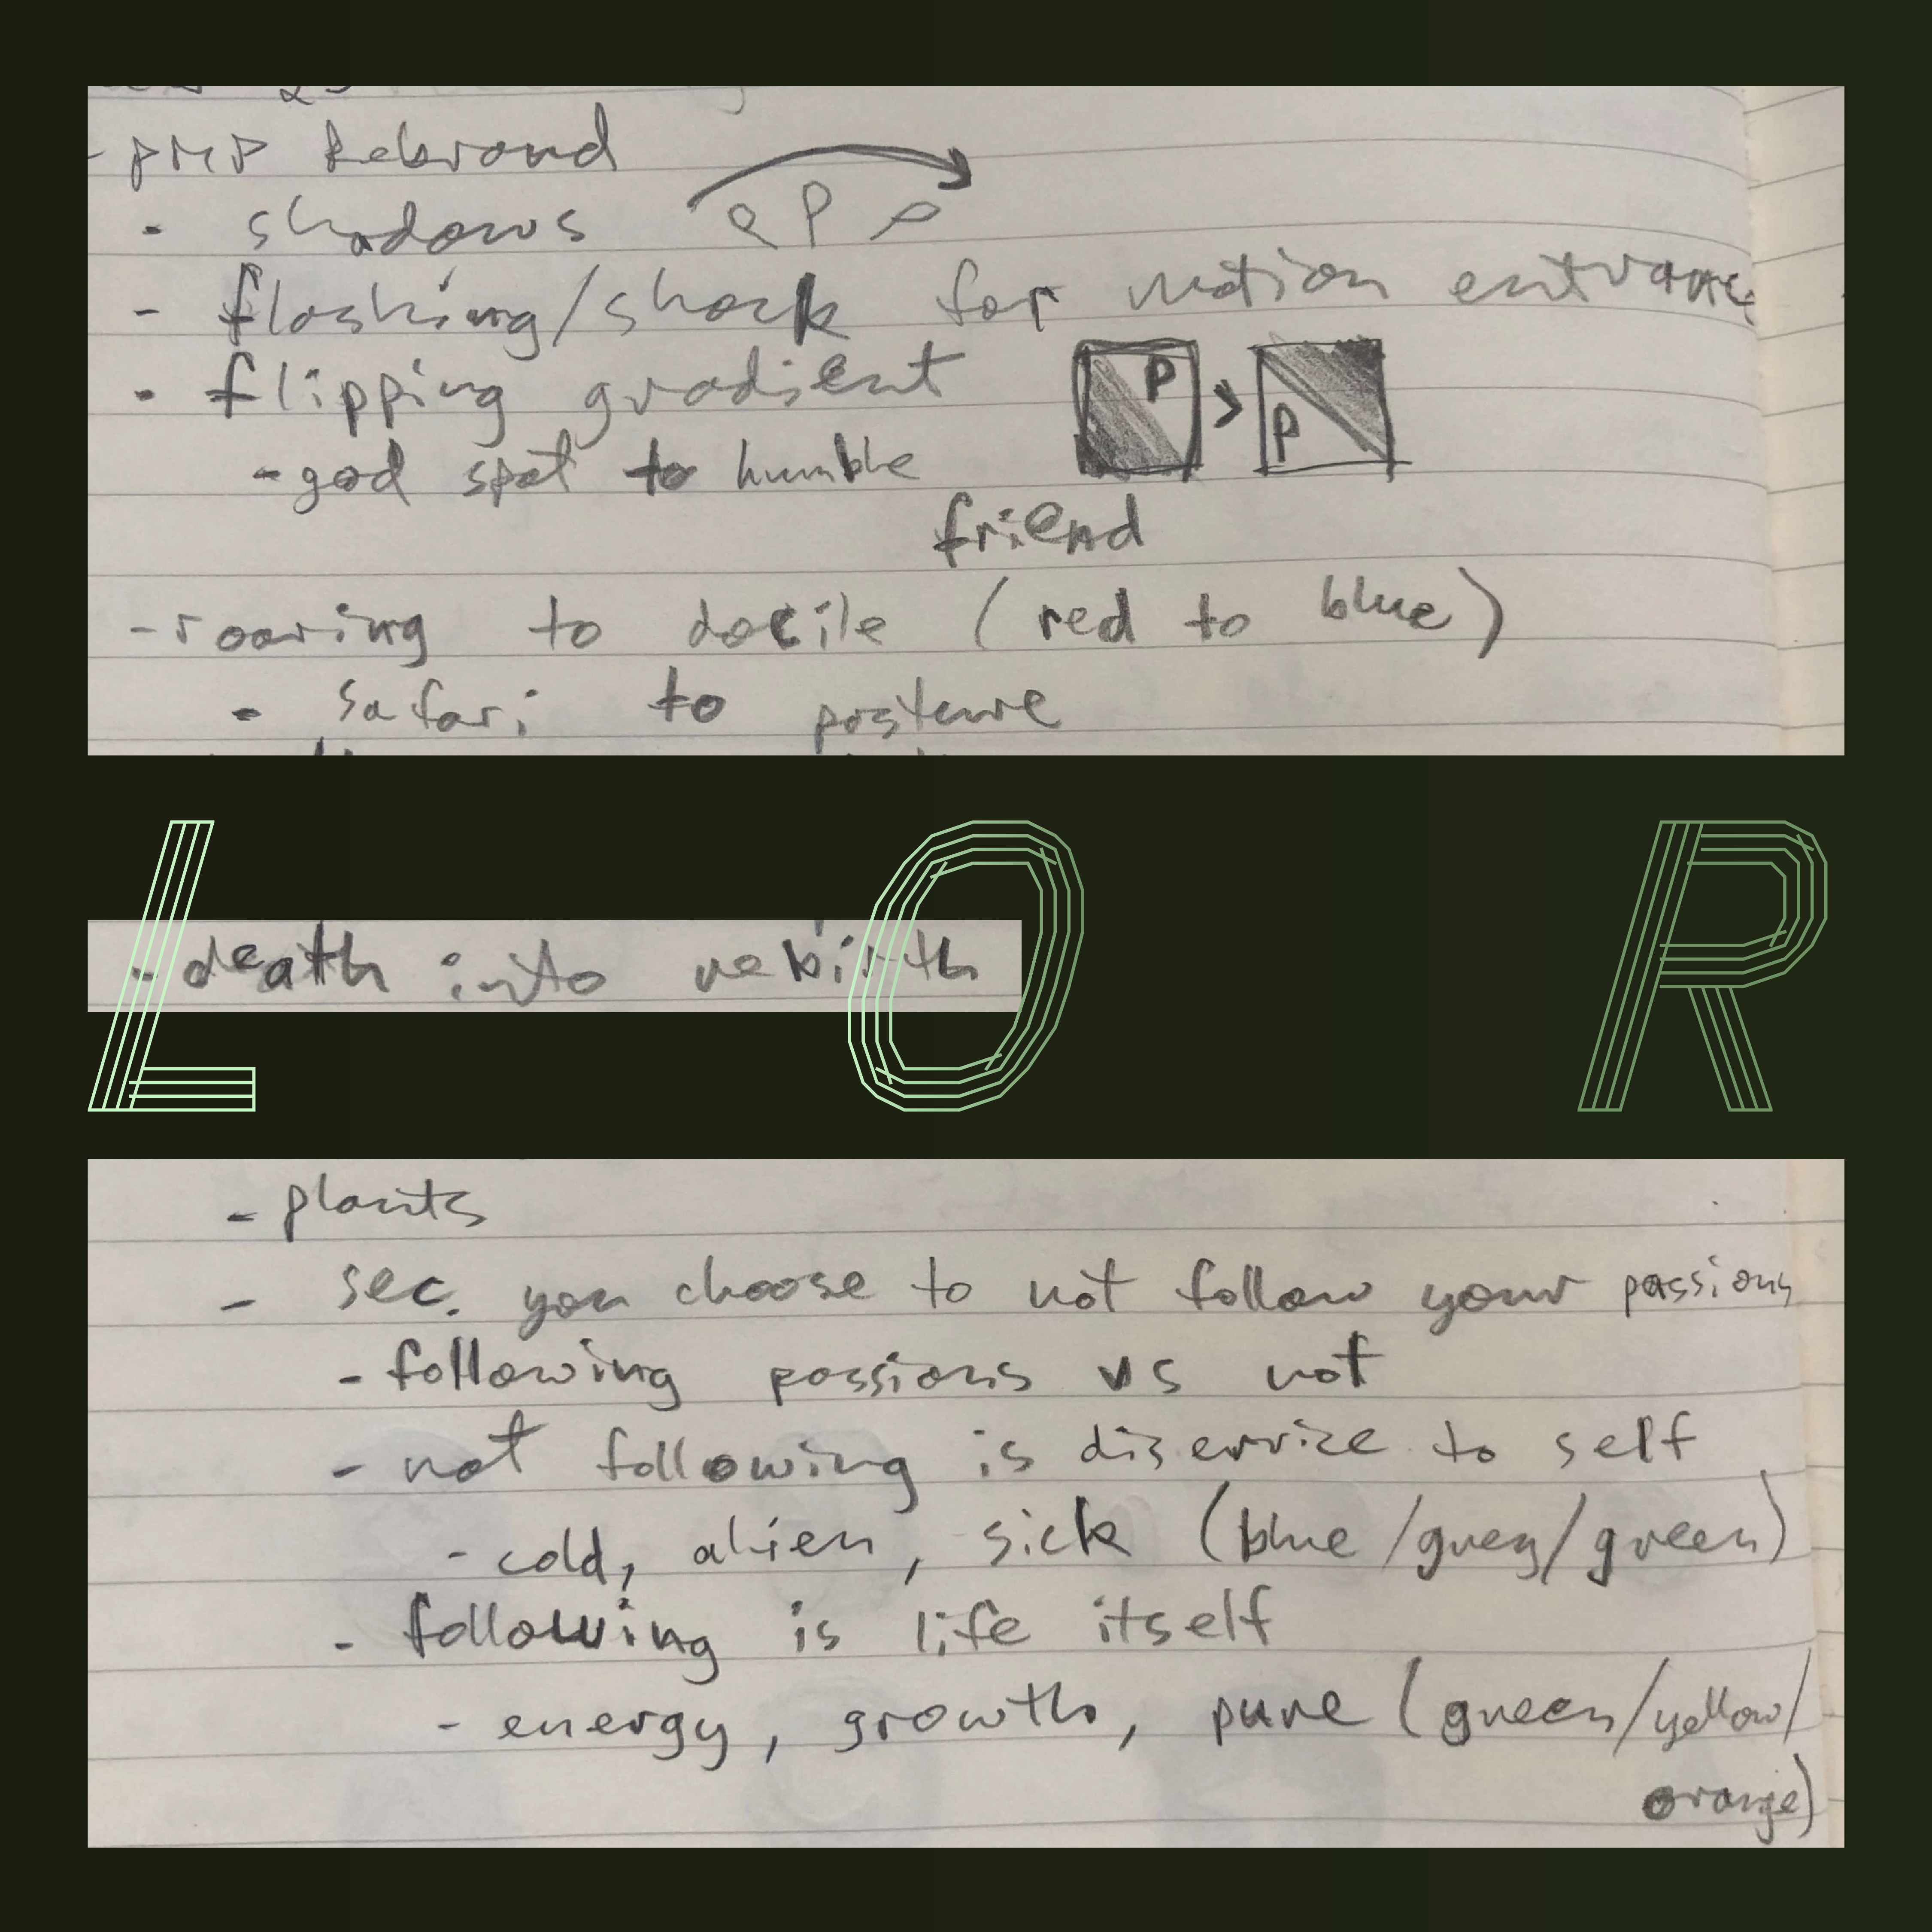 - PMP Rebrand
- shadows P P P
- flashing/shock for motion entrance
- flipping gradient P > P
- god spot to humble
friend
- roaring to docile (red to blue)
- safari to posture
L O R
- death into rebirth
- plants
- sec. you choose to not follow your passions
- following passions vs not
- not following is diservice to self
- cold, alien, sick (blue/grey/green)
- following is life itself
- energy, growth, pure (green/yellow/
orange)